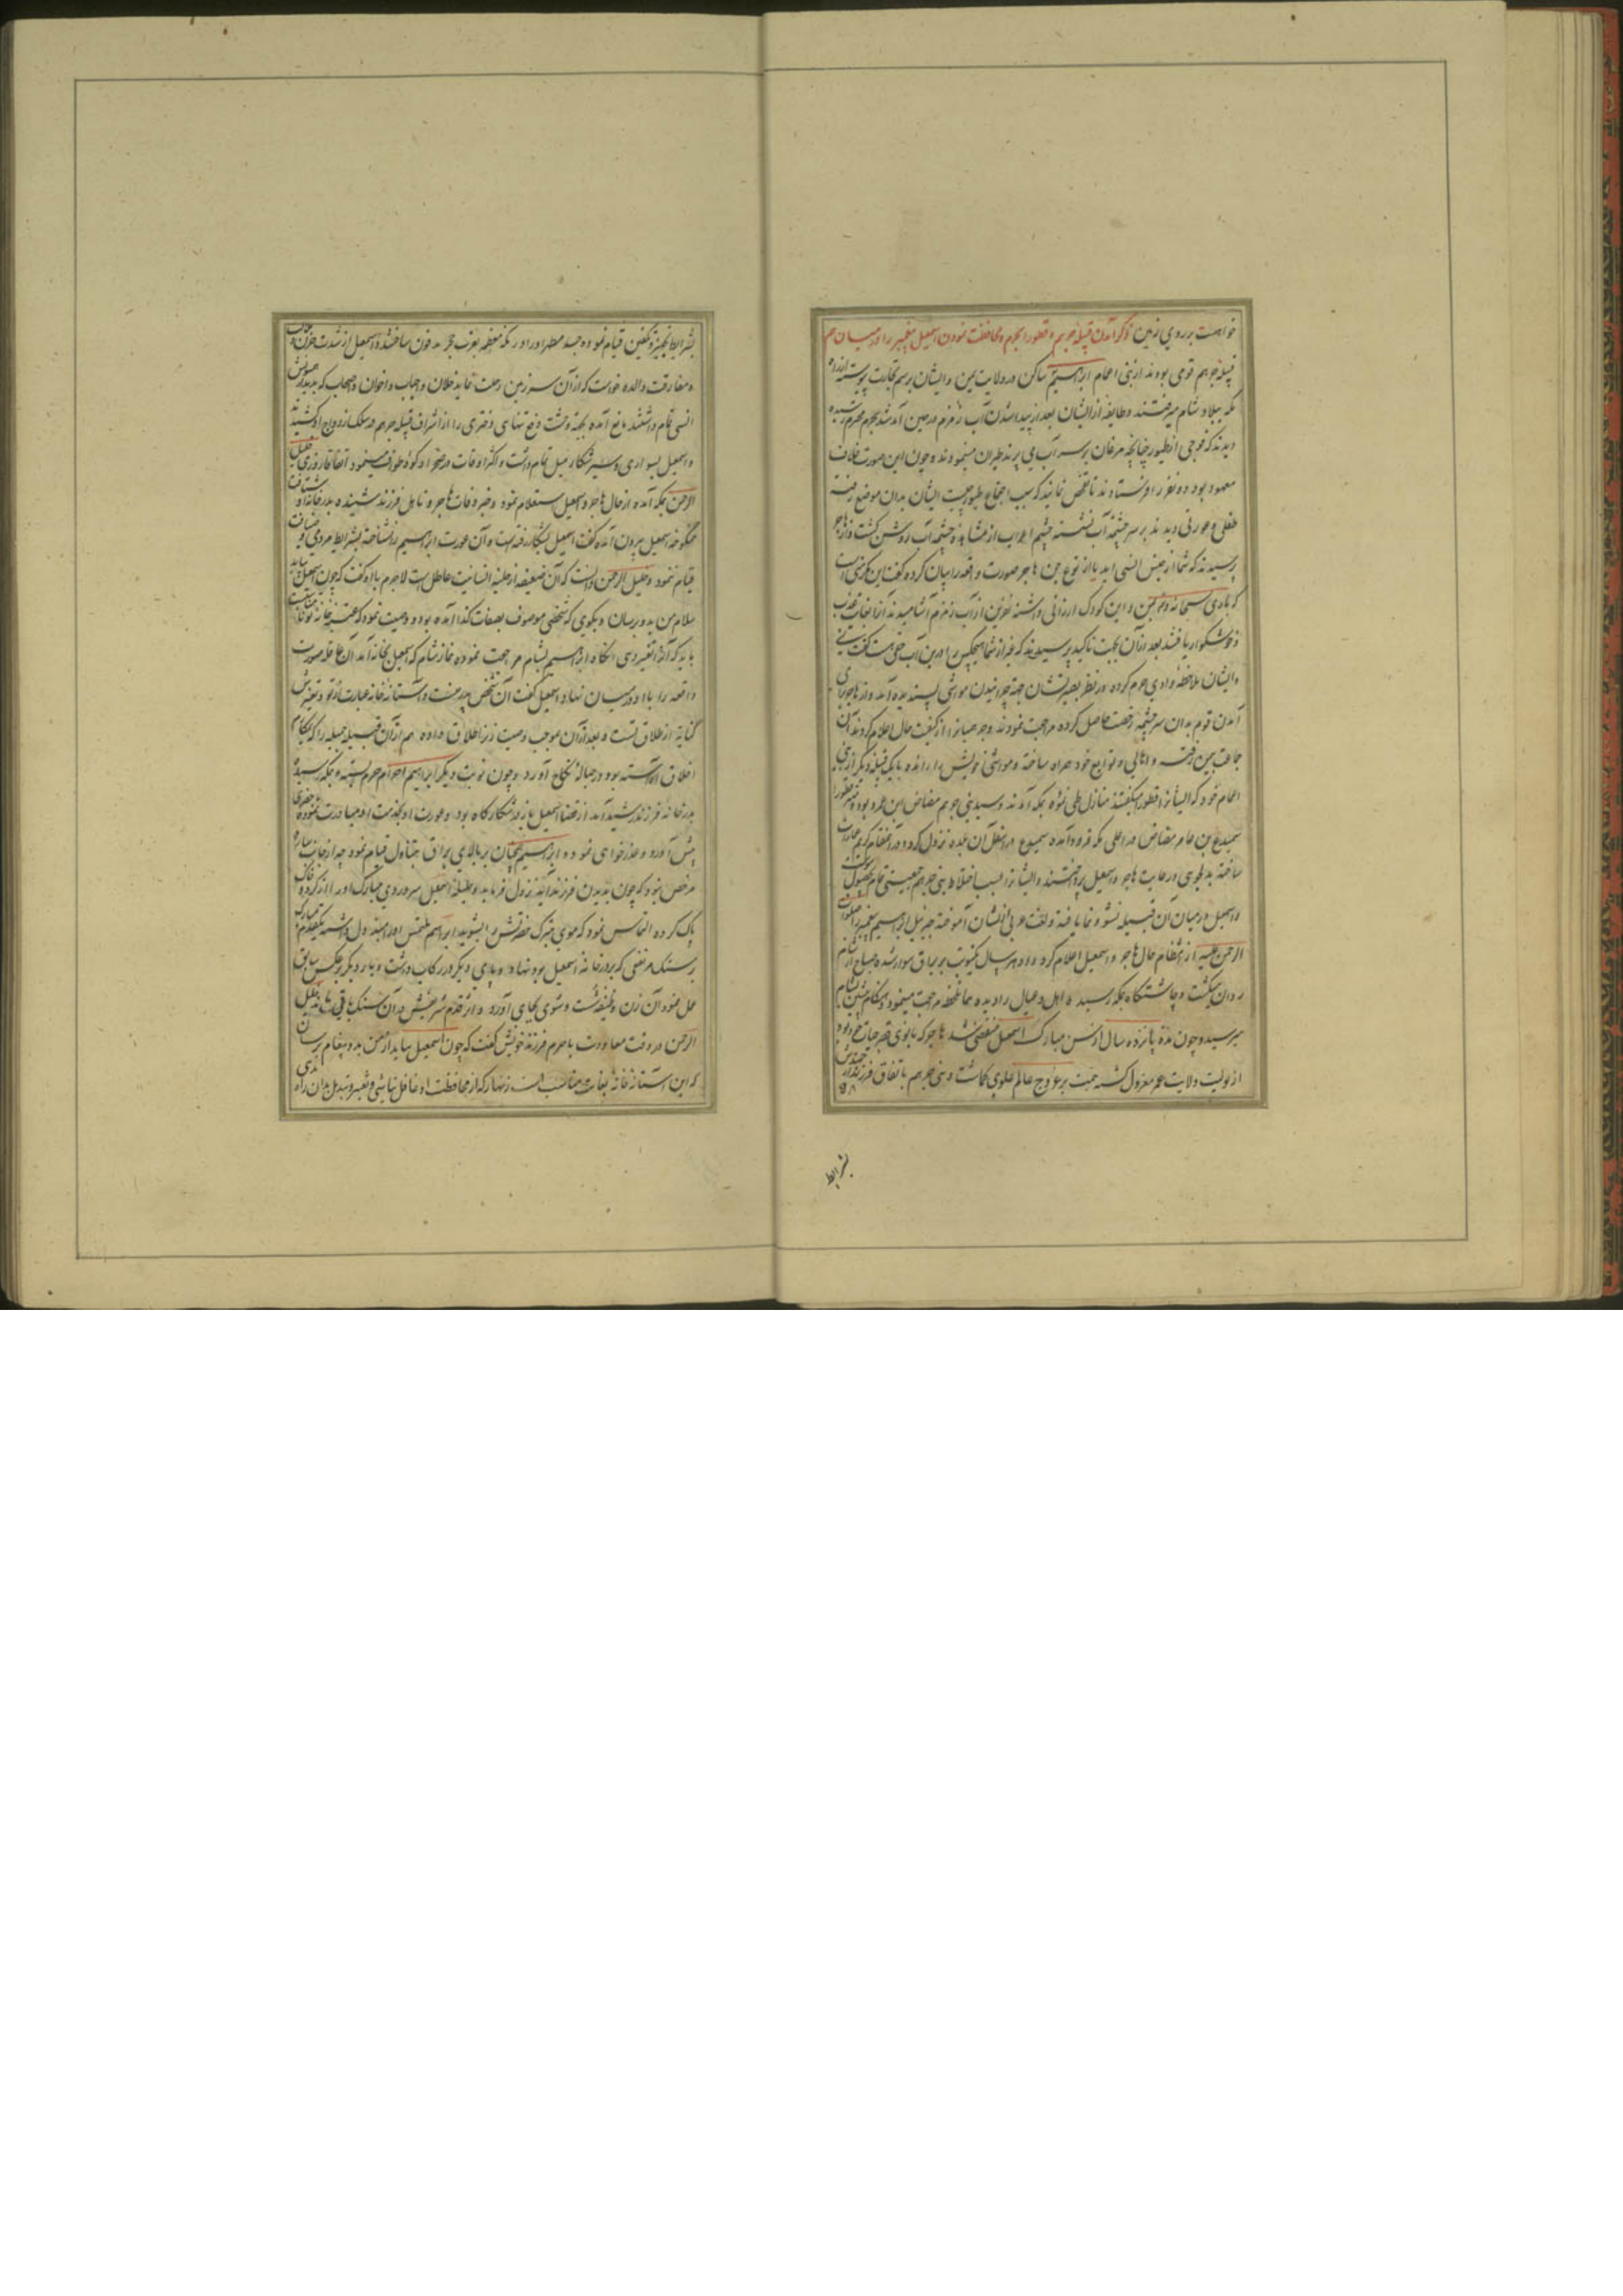 خواست بر روی زمین ذکر آمدن قبیله جرهم و قطورا بحرم و محافظت نمودن اسمعیل پیغمبر را در میان حرم
قبیله جرهم قومی بودند از بنی اعمام ابراهیم ساکن در ولایت یمن و ایشان برسم تجارت پیوسته از راه
مکه ببلاد شام میرفتند و طایفه از ایشان بعد از پیدا شدن آب زمزم در حین آمد شد بحرم محرم رسیده
دیدند که فوجی از طیور چنانچه مرغان بر سر آب می پرند طیران مینمودند و چون این صورت خلاف
معهود بود دو نفر را فرستادند تا تفحص نمایند که سبب اجتماع طیور چیست ایشان بدان موضع رفته
طفلی و عورتی دیدند بر سر چشمه آب نشسته چشم اعراب از مشاهده چشمه آب روشن گشت و از هاجر
پرسیدند که شما از جنس انسی اید یا از نوع جن هاجر صورت واقعه را بیان کرده گفت این مکرمتی است
که باری سبحانه و تعالی بمن و این کودک ارزانی داشته نفرین از آب زمزم آشامیدند آنرا بغایت عذب
و خوشگوار یافتند بعد از آن بجهت تاکید پرسیدند که غیر از شما هیچکس را درین آب حقی هست گفت نی
و ایشان ملاحظه وادی حرم کرده در نظر بصیرتشان جهة چرانیدن مواشی پسندیده آمد و از هاجر برای
آمدن قوم بدان سرچشمه رخصت حاصل کرده مراجعت نمودند و جرهمیانرا از کیفیت حال اعلام کردند آن
جماعت بیمن رفته و اهالی و توابع خود همراه ساخته و مواشی خویش را رانده با یک قبیله دیگر از بنی
اعمام خود که ایشانرا قطورا میگفتند منازل طی نموده بمکه آمدند و سید بنی جرهم مضاض ابن عمرو بود و مهتر قطورا
سمیدع بن عامر مضاض در اعلی مکه فرود آمده سمیدع در اسفل آن بلده نزول کرد و در آنمقام کریم عمارات
ساخته بدلجویی و رعایت هاجر و اسمعیل پرداختند و ایشانرا بسبب اختلاط بنی جرهم جمعیتی تمام بحصول پیوست
و اسمعیل در میان آن قبیله نشو و نما یافته و لغت عربی از ایشان آموخته جبرئیل ابراهیم پیغمبر را صلوات
الرحمن علیه از انتظام حال هاجر و اسمعیل اعلام کرد و او هر سال یکنوبت بر براق سوار شده صباح از شام
روان میگشت و چاشتگاه بمکه رسیده اهل و عیال را دیده همانلحظه مراجعت مینمود و هنگام پیشین بشام
میرسید و چون مدة پانزده سال از سن مبارک اسمعیل منقضی شد هاجر که بانوی قصر حیات بود
از تولیت ولایت عمر معزول گشته همت بر عروج عالم علوی گماشت و بنی جرهم باتفاق فرزند ارجمندش
بشرایط
بشرایط تجهیز و تکفین قیام نموده جسد مطهر او را در مکه معظمه بقرب حجر مدفون ساختند و اسمعیل از شدت حزن
و مفارقت والده خواست که از آن سرزمین رحلت نماید خلان و احباب و اخوان و اصحاب که بدیدار همیونش
انسی تمام داشتند مانع آمده بجهة وحشت و رفع تنهایی دختری را از اشراف قبیله جرهم در سلک ازدواج او کشیدند
و اسمعیل بسواری و سیر شکار میل تمام داشت و اکثر اوقات در صحرا و کوه طوف مینمود اتفاقا روزی خلیل
الرحمن بمکه آمده از حال هاجر و اسمعیل استعلام نمود و خبر وفات هاجر و تاهل فرزند شنیده بدر خانه او شتافت
منکوحه اسمعیل بیرون آمده گفت اسمعیل بشکار رفته است و آن عورت ابراهیم را نشناخته بشرایط مردمی و ضیافت
قیام ننمود و خلیل الرحمن دانست که آن ضعیفه از حلیه انسانیت عاطل است لاجرم با او گفت که چون اسمعیل بیاید
سلام من بدو برسان و بگوی که شخصی موصوف بصفات کذا آمده بود و وصیت نمود که عتبه خانه تو نامناسبست
باید که آنرا تغییر دهی آنگاه ابراهیم بشام مراجعت نموده نماز شام که اسمعیل بخانه آمد آن عاقله صورت
واقعه را با او در میان نهاد و اسمعیل گفت آن شخص پدر منست و آستانه خانه عبارت از تو و تغییرش
کنایه از طلاق تست و بعد از آن موجب وصیت زنرا طلاق داده هم از آن قبیله جمیله را که بمکارم
اخلاق آراسته بود در حباله نکاح آورد و چون نوبت دیگر ابراهیم احرام حرم بسته و بمکه رسید
بدر خانه فرزند رشید آمد از قضا اسمعیل باز در شکارگاه بود و عورت او بخدمت او مبادرت نموده ماحضری
پیش آورد و عذرخواهی نمود و ابراهیم همچنان بر بالای براق بتناول قیام نمود چه از جانب ساره
مرخص نبود که چون بدیدن فرزند آید نزول فرماید و حلیله اسمعیل سر و روی مبارک او را از گرد و خاک
پاک کرده التماس نمود که موی متبرک حضرتش را بشوید ابراهیم ملتمس او را مبذول داشته یکقدم مبارک
بر سنک مرتفعی که بر در خانه اسمعیل بود نهاد و پای دیگر در رکاب داشت و بار دیگر بر عکس سابق
عمل نمود آن زن وظیفه شست و شوی بجای آورد و اثر قدم شریفش در آن سنک باقی ماند خلیل
الرحمن در وقت معاودت با حرم فرزند خویش گفت که چون اسمعیل بیاید از من بدو پیغام برسان
که این آستانه خانه بغایت مناسب است زنهار که از محافظت او غافل نباشی و تغییر و تبدیل بدان راه ندهی